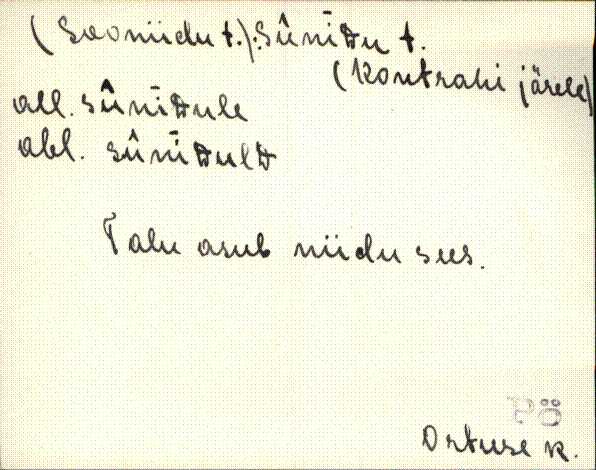 (Sooniidu t.): Sûnīᴅu t.
(Kontrahi järele)
all. sûnīᴅule
abl. sûnīᴅulᴅ
Talu asub niidu sees.
Pö
Ortuse k.